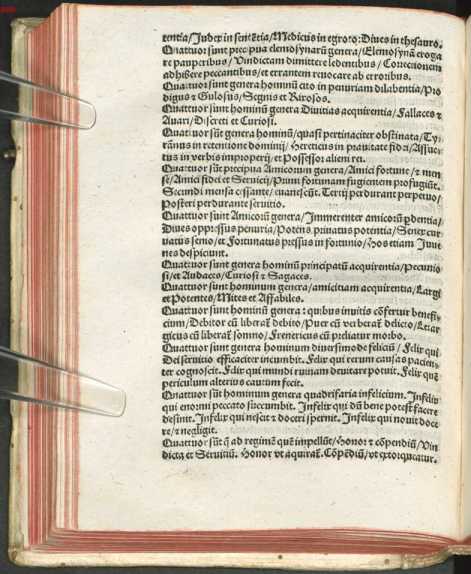 tentia/Iudex in sentētia/Medicus in egroto: Diues in thesauro.
Quattuor sunt precipua elemosynarū genera/Elemosynā eroga
re pauperibus/Vindictam dimittere ledentibus/Correctionem
adhibere peccantibus/et errantem reuocare ab erroribus.
Quattuor sunt genera hominū cito in penuriam dilabentia/Pro
digus ⁊ Gulosus/Segnis et Rixosos.
Quattuor sunt hominū genera Diuitias acquirentia/Fallaces ⁊
Auari/Discreti et Curiosi.
Quattuor sūt genera hominū/quasi pertinaciter obstinata/Ty-
rānus in retentione dominij/Hereticus in prauitate fidei/Assue
tus in verbis improperij/et Possessor alieni rei.
Quattuor sūt precipua Amicorum genera/Amici fortune/⁊ men
se/Amici fidei et Seruicij/Primi fortunam fugientem profugiūt.
Secundi mensa cessante/euanescūt. Tertij perdurant perpetuo/
Posteri perdurante seruitio.
Quattuor sunt Amicorū genera/Immerenter amicorū pdentia/
Diues oppressus penuria/Potens priuatus potentia/Senex cur
uatus senio/et Fortunatus pressus in fortunio/Hos etiam Iuue
nes despiciunt.
Quattuor sunt genera hominū principatū acquirentia/Pecunio
si/et Audaces/Curiosi ⁊ Sagaces.
Quattuor sunt hominum genera/amicitiam acquirentia/Largi
et Potentes/Mites et Affabiles.
Quattuor sunt hominū genera: quibus inuitis cōfertur benefi-
cium/Debitor cū liberat̄ debito/Puer cū verberat̄ delicto/Letar
gicus cū liberat̄ somno/Freneticus cū priuatur morbo.
Quattuor sunt genera hominum diuersimode feliciū/Felix qui
Dei seruitio efficaciter incumbit. Felix qui rerum causas pacien-
ter cognoscit. Felix qui mundi ruinam deuitare potuit. Felix quē
periculum alterius cautum fecit.
Quattuor sūt hominum genera quadrifaria infelicium. Infelix
qui enormi peccato succumbit. Infelix qui dū bene potest facere
desinit. Infelix qui nescit ⁊ doceri spernit. Infelix qui nouit doce
re/⁊ negligit.
Quattuor sūt q̄ ad reginē quē impellūt/Honor ⁊ cōpendiū/Vin
dicta et Seruitiū. Honor vt aquirat̄. Cōpēdiū/vt extorqueatur.